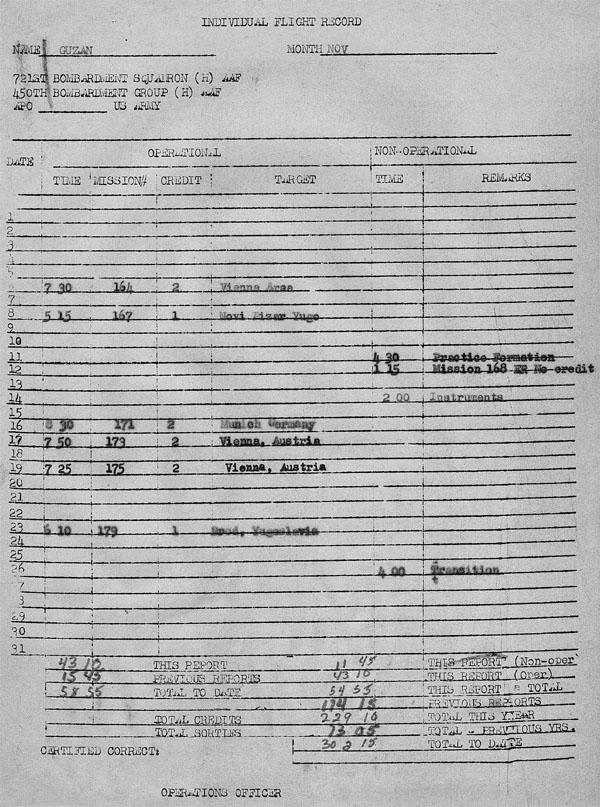 INDIVIDUAL FLIGHT RECORD
NAME GUZAN MONTH NOV
721ST BOMBARDMENT SQUADRON (H) AAF
450TH BOMBARDMENT GROUP (H) AAF
APO US ARMY
OPERATIONAL NON-OPERATIONAL
DATE
TIME MISSION# CREDIT TARGET TIME REMARKS
1
2
3
4
5
7 30 164 2 Vienna Area
7
8 5 15 167 1 Novi Pizar Yugo
9
10
11 4 30 Practice Formation
12 1 15 Mission 168 ER No credit
13
14 2 00 Instruments
15
16 8 30 171 2 Munich Germany
17 7 50 173 2 Vienna, Austria
18
19 7 25 175 2 Vienna, Austria
20
21
22
23 6 10 179 1 Brod, Yugoslavia
24
25
26 4 00 Transition
7
3
29
30
31
43 10 THIS REPORT 11 45 THIS REPORT (Non-oper
15 45 PREVIOUS REPORTS 43 10 THIS REPORT (Oper)
58 55 TOTAL TO DATE 54 55 THIS REPORT = TOTAL
174 15 PREVIOUS REPORTS
TOTAL CREDITS 229 10 TOTAL THIS YEAR
TOTAL SORTIES 73 05 TOTAL - PREVIOUS YRS.
30 2 15 TOTAL TO DATE
CERTIFIED CORRECT:
OPERATIONS OFFICER